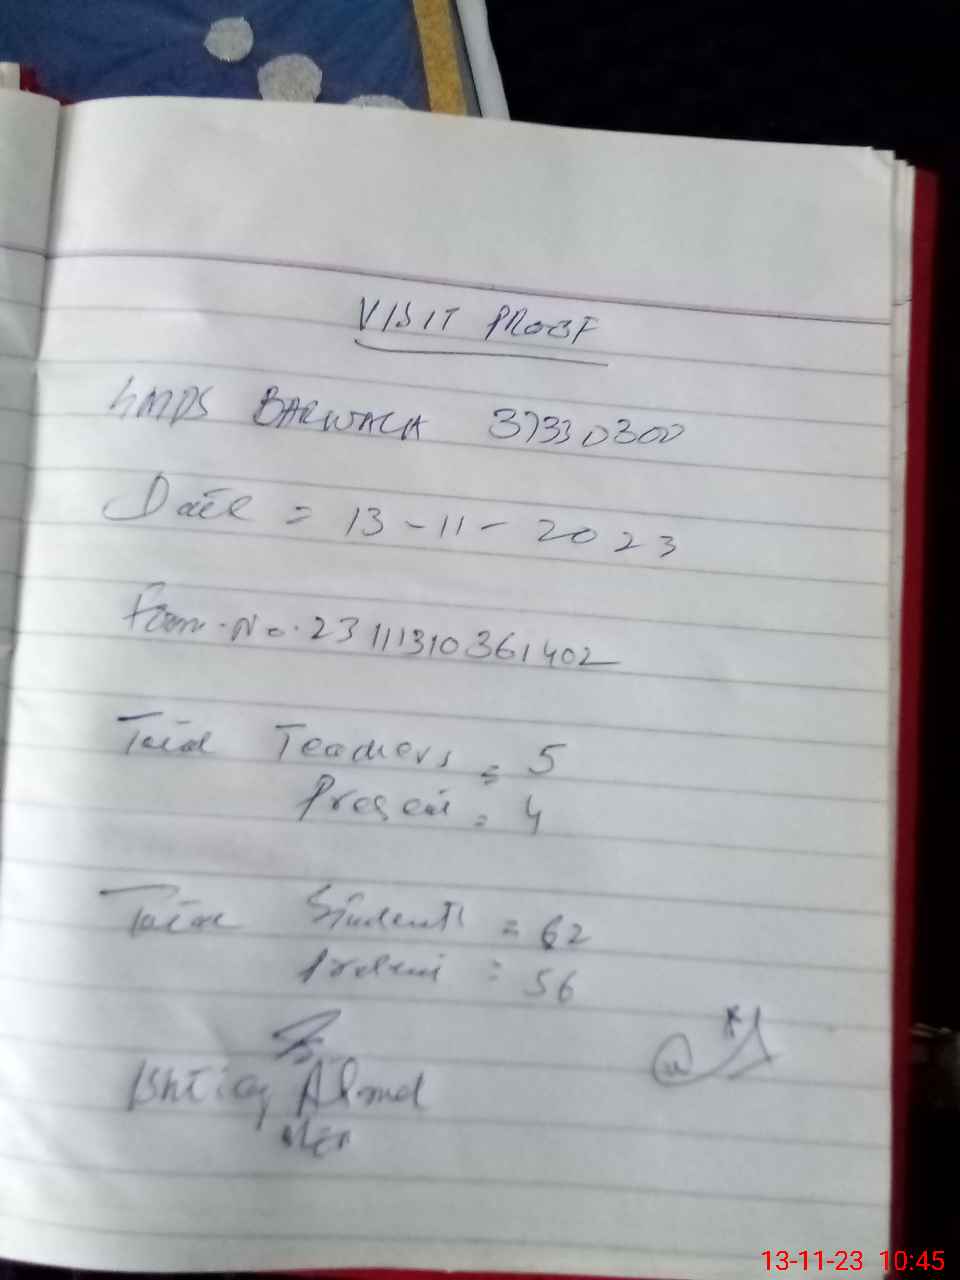 VISIT PROOF
GMPS BARWALA 37330300
Date = 13-11-2023
Form.No.23111310361402
Total Teachers = 5
Present = 4
Total Students = 62
Present = 56
Ishtiaq Ahmed
MEA
13-11-23 10:45